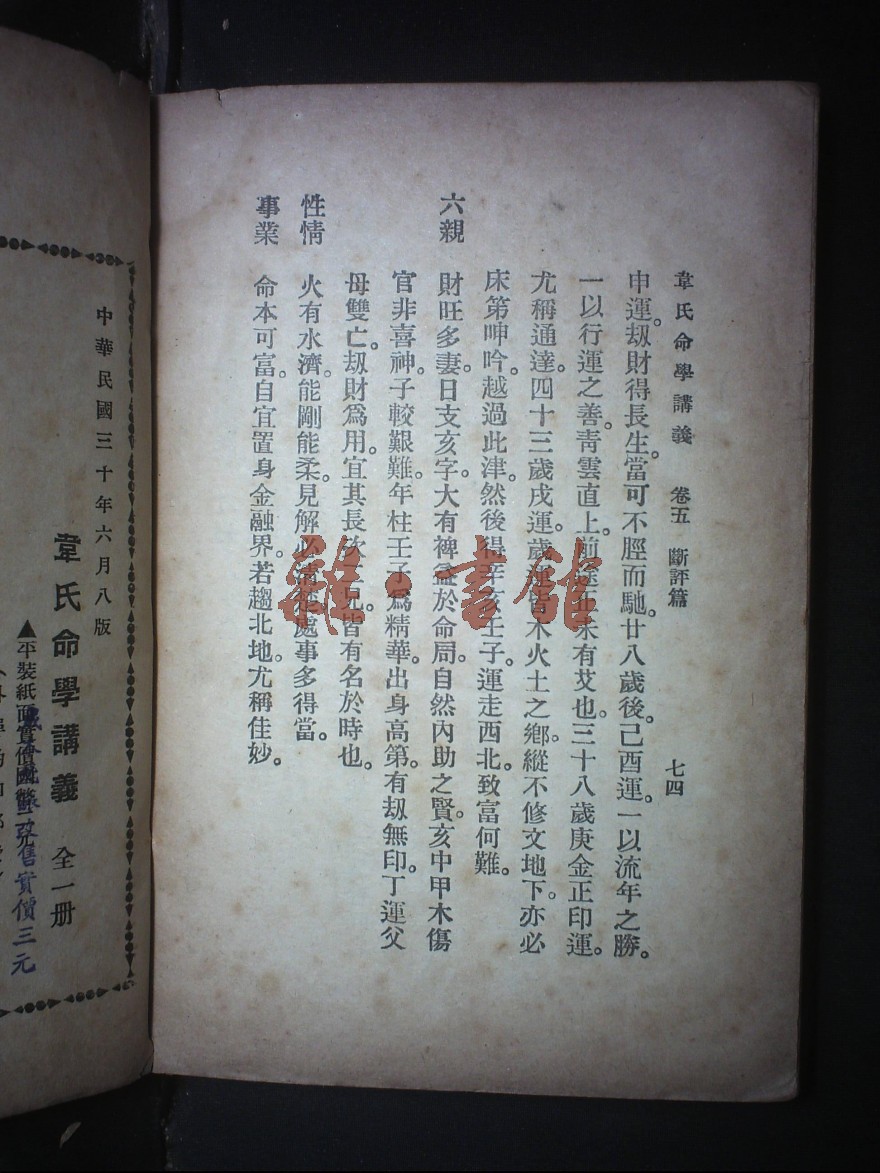 韋氏命學講義 卷五 斷評篇 七四
申運。刼財得長生。當可不脛而馳。廿八歲後。己酉運。一以流年之勝。
一以行運之善。靑雲直上。前途正未有艾也。三十八歲庚金正印運。
尤稱通達。四十三歲戌運。歲運皆木火土之鄉。縱不修文地下。亦必
床第呻吟。越過此津。然後得辛亥壬子。運走西北。致富何難。
六親 財旺多妻。日支亥字。大有裨益於命局。自然內助之賢。亥中甲木傷
官非喜神。子較艱難。年柱壬子爲精華。出身高第。有刼無印。丁運父
母雙亡。刼財爲用。宜其長次二兄。皆有名於時也。
性情 火有水濟。能剛能柔。見解必清楚。處事多得當。
事業 命本可富。自宜置身金融界。若趨北地。尤稱佳妙。
中華民國三十年六月八版
韋氏命學講義 全一册
▲平裝紙面實價國幣
售實價三元
雜·書館